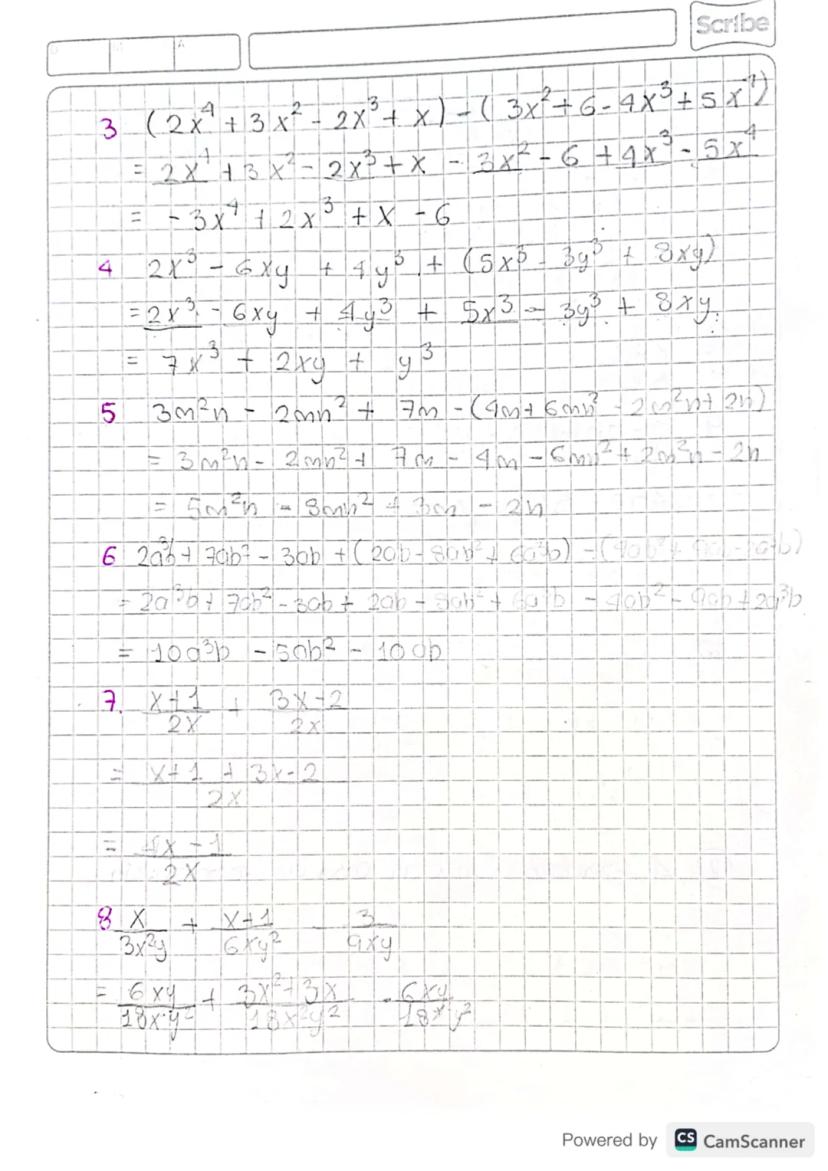 D M A
Scribe
3 (2x⁴ + 3x² - 2x³ + x) - (3x² + 6 - 4x³ + 5x⁴)
= 2x⁴ + 3x² - 2x³ + x - 3x² - 6 + 4x³ - 5x⁴
= - 3x⁴ + 2x³ + x - 6
4 2x³ - 6xy + 4y³ + (5x³ - 3y³ + 8xy)
= 2x³ - 6xy + 4y³ + 5x³ - 3y³ + 8xy
= 7x³ + 2xy + y³
5 3m²n - 2mn² + 7m - (4m + 6mn² - 2m²n + 2n)
= 3m²n - 2mn² + 7m - 4m - 6mn² + 2m²n - 2n
= 5m²n - 8mn² + 3m - 2n
6 2a³b + 7ab² - 3ab + (2ab - 8ab² + 6a³b) - (4ab² + 9ab - 2a³b)
= 2a³b + 7ab² - 3ab + 2ab - 8ab² + 6a³b - 4ab² - 9ab + 2a³b
= 10a³b - 5ab² - 10ab
7. x+1/2x + 3x-2/2x
= x+1 + 3x-2/2x
= 4x - 1/2x
8 x/3x²y + x+1/6xy² - 3/9xy
= 6xy/18x²y² + 3x²+3x/18x²y² - 6xy/18x²y²
Powered by CS CamScanner